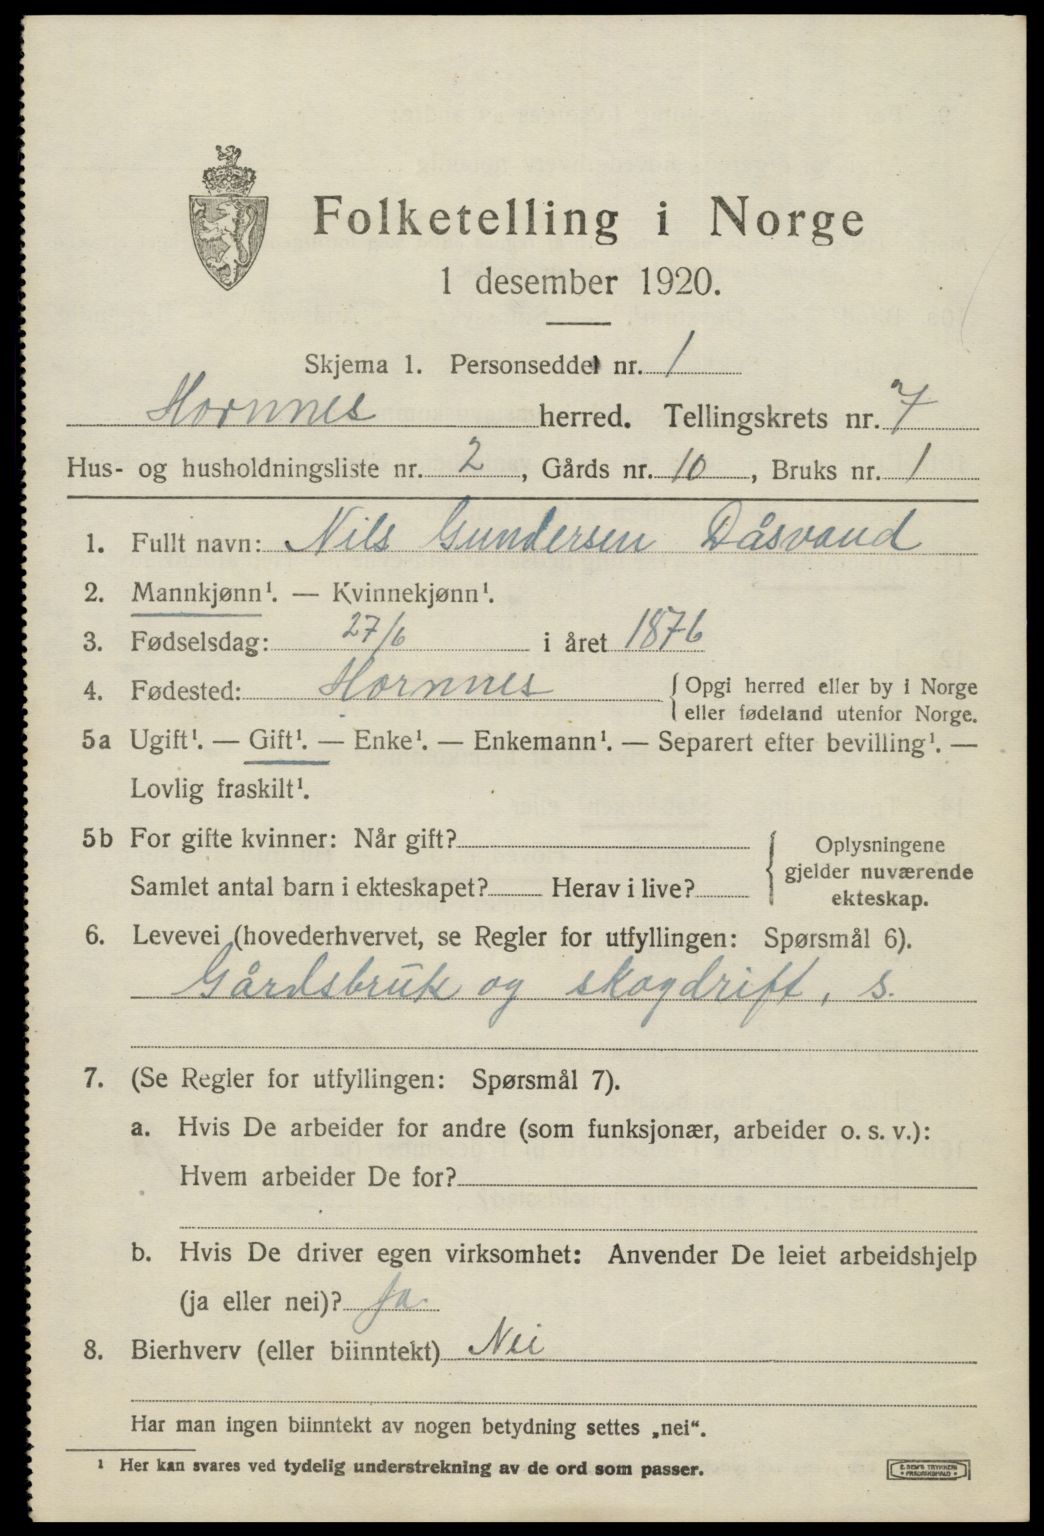 Folketelling i Norge
1 desember 1920.
Skjema 1. Personseddel nr. 1
Hornnes herred. Tellingskrets nr. 7
Hus- og husholdningsliste nr. 2, Gårds nr. 10, Bruks nr. 1
1. Fullt navn: Nils Gundersen Dåsvand
2. Mannkjønn¹. — Kvinnekjønn¹.
3. Fødselsdag: 27/6 i året 1876
4. Fødested: Hornnes { Opgi herred eller by i Norge
eller fødeland utenfor Norge.
5a Ugift¹. — Gift¹. — Enke¹. — Enkemann¹. — Separert efter bevilling¹. —
Lovlig fraskilt¹.
5b For gifte kvinner: Når gift?
Samlet antal barn i ekteskapet? Herav i live?
{ Oplysningene
gjelder nuværende
ekteskap.
6. Levevei (hovederhvervet, se Regler for utfyllingen: Spørsmål 6).
Gårdsbruk og skogdrift, s.
7. (Se Regler for utfyllingen: Spørsmål 7).
a. Hvis De arbeider for andre (som funksjonær, arbeider o. s. v.):
Hvem arbeider De for?
b. Hvis De driver egen virksomhet: Anvender De leiet arbeidshjelp
(ja eller nei)? Ja
8. Bierhverv (eller biinntekt) Nei
Har man ingen biinntekt av nogen betydning settes „nei“.
¹ Her kan svares ved tydelig understrekning av de ord som passer.